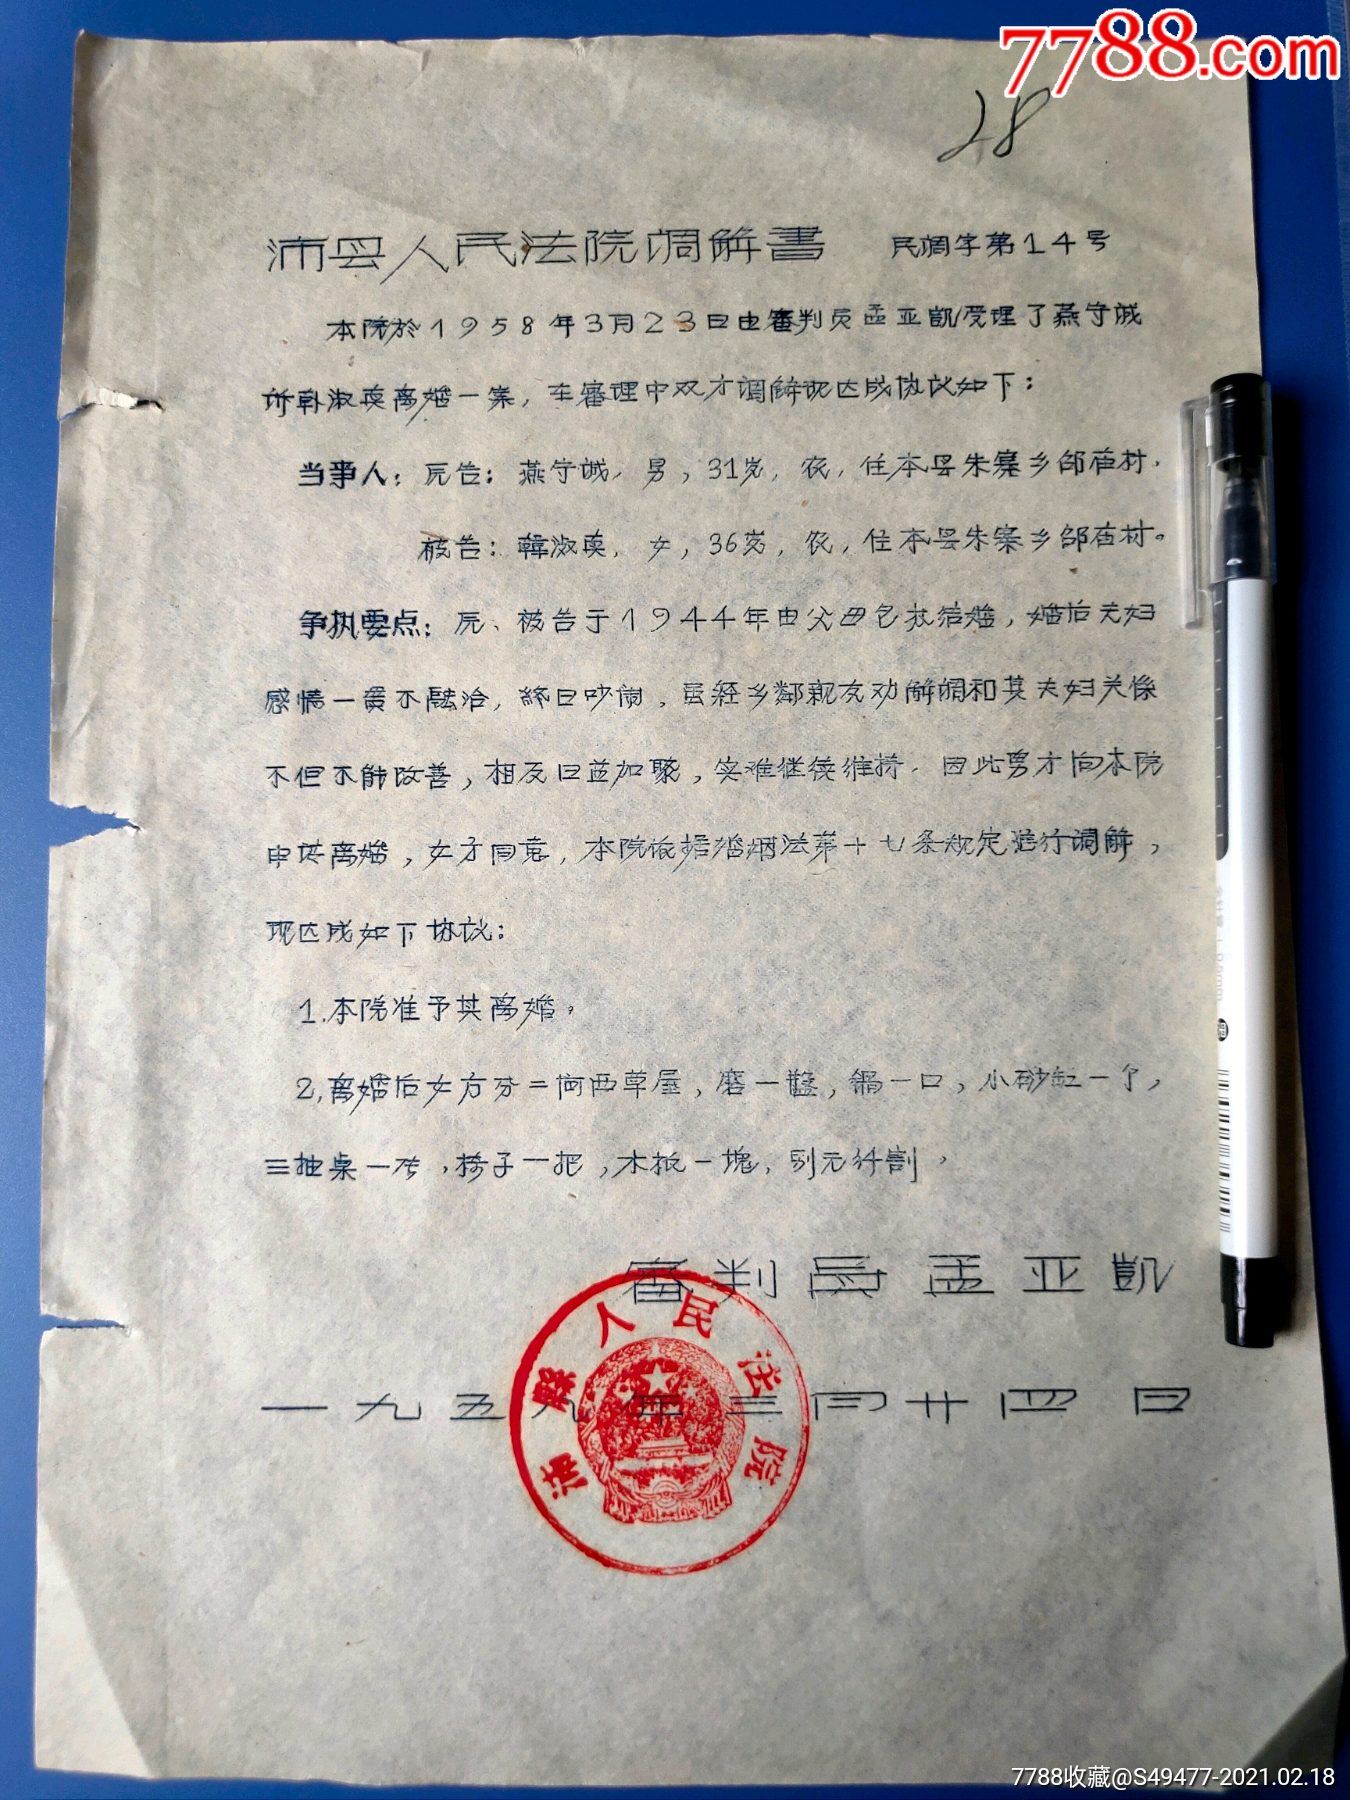 7788.com
28
沛县人民法院调解書 民调字第14号
本院於1958年3月23日由審判员孟亚凱受理了燕守诚
诉韩淑英离婚一案，在審理中双方调解现达成协议如下：
当事人：原告：燕守诚，男，31岁，农，住本县朱寨乡邵庙村。
被告：韓淑英，女，36岁，农，住本县朱寨乡邵庙村。
争执要点：原、被告于1944年由父母包办结婚，婚后夫妇
感情一贯不融洽，終日吵闹，虽经乡鄰親友劝解调和其夫妇关係
不但不能改善，相反日益加聚，实难继续维持。因此男方向本院
申请离婚，女方同意，本院依据婚姻法第十七条规定进行调解，
现达成如下协议：
1.本院准予其离婚。
2.离婚后女方分二间西草屋，磨一盤，锅一口，小砂缸一个，
三抽桌一张，椅子一把，木板一塊，别无纤割。
審判員孟亚凱
一九五九年三月廿四日
沛縣人民法院
7788收藏@S49477-2021.02.18